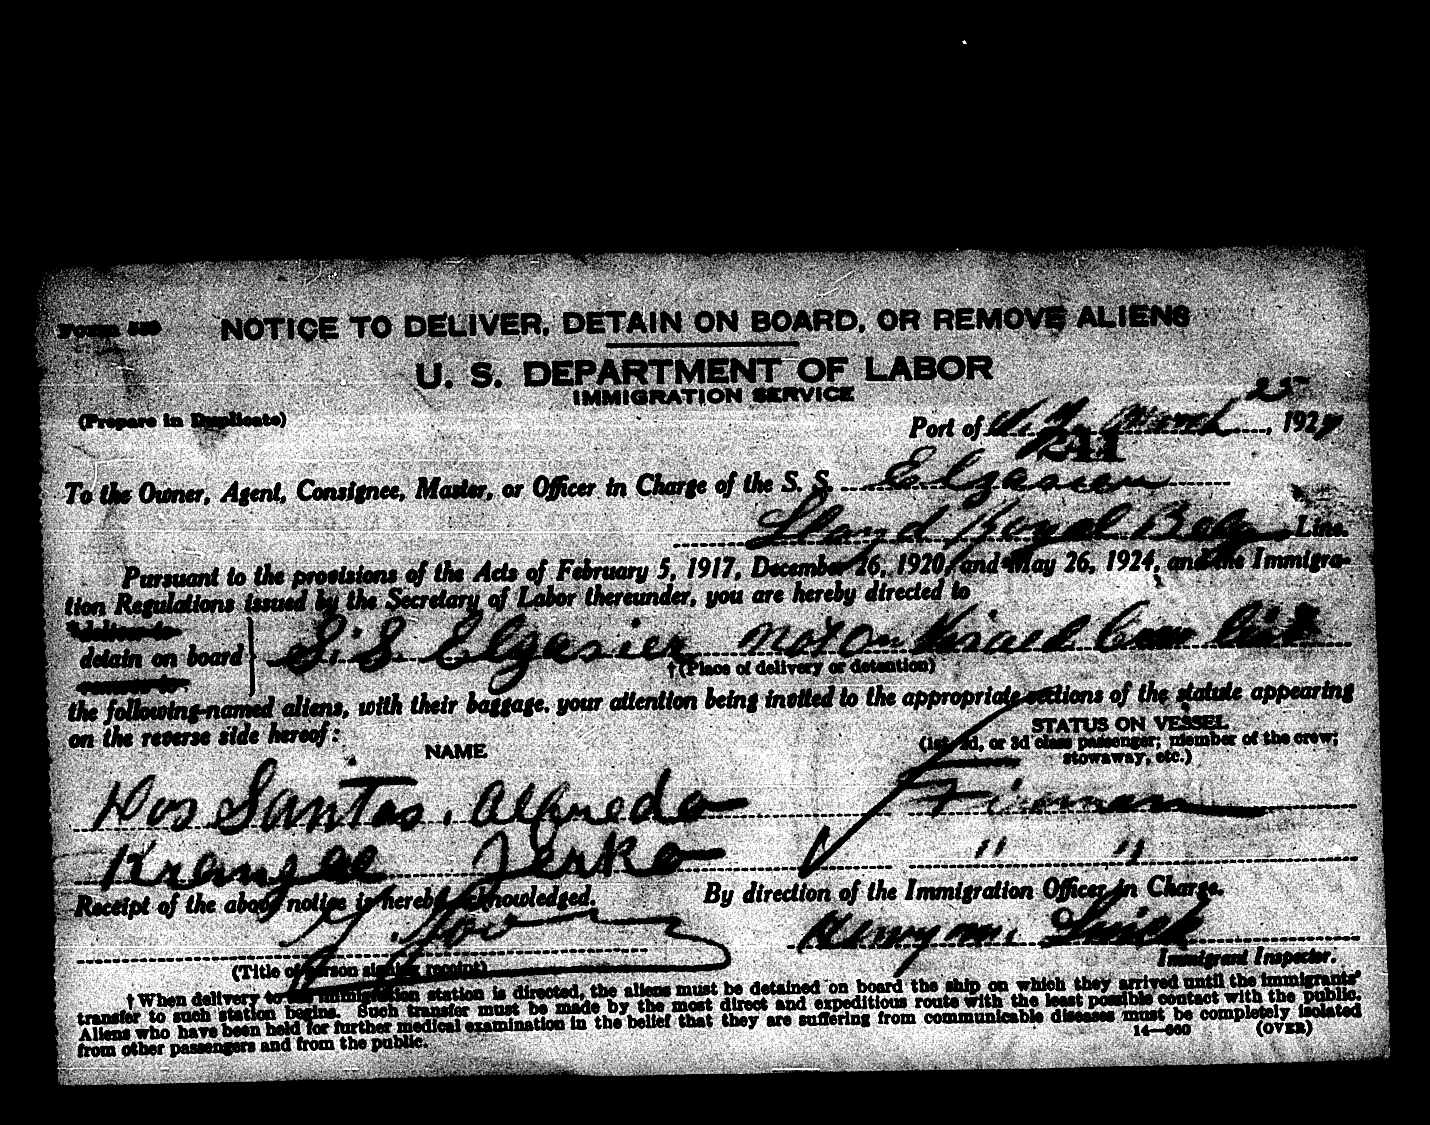 Form 539
NOTICE TO DELIVER, DETAIN ON BOARD, OR REMOVE ALIENS
U. S. DEPARTMENT OF LABOR
IMMIGRATION SERVICE
(Prepare in Duplicate)
Port of N.Y. March 25, 192
241
To the Owner, Agent, Consignee, Master, or Officer in Charge of the S. S. Elzasier
Lloyd Royal Belg Line.
Pursuant to the provisions of the Acts of February 5, 1917, December 26, 1920, and May 26, 1924, and the Immigra-
tion Regulations issued by the Secretary of Labor thereunder, you are hereby directed to
deliver to
detain on board S.S. Elzasier not on Visaed Crew list
remove to
†(Place of delivery or detention)
the following-named aliens, with their baggage, your attention being invited to the appropriate sections of the statute appearing
on the reverse side hereof:
NAME
STATUS ON VESSEL
(1st, 2d, or 3d class passenger; member of the crew;
stowaway, etc.)
Dos Santos, Alfredo Fireman
Kranjac Jerko " "
Receipt of the above notice is hereby acknowledged.
By direction of the Immigration Officer in Charge.
Henry m.
(Title of person signing receipt)
Immigrant Inspector.
†When delivery to the immigration station is directed, the aliens must be detained on board the ship on which they arrived until the immigrants'
transfer to such station begins. Such transfer must be made by the most direct and expeditious route with the least possible contact with the public.
Aliens who have been held for further medical examination in the belief that they are suffering from communicable diseases must be completely isolated
from other passengers and from the public.
14—960 (OVER)